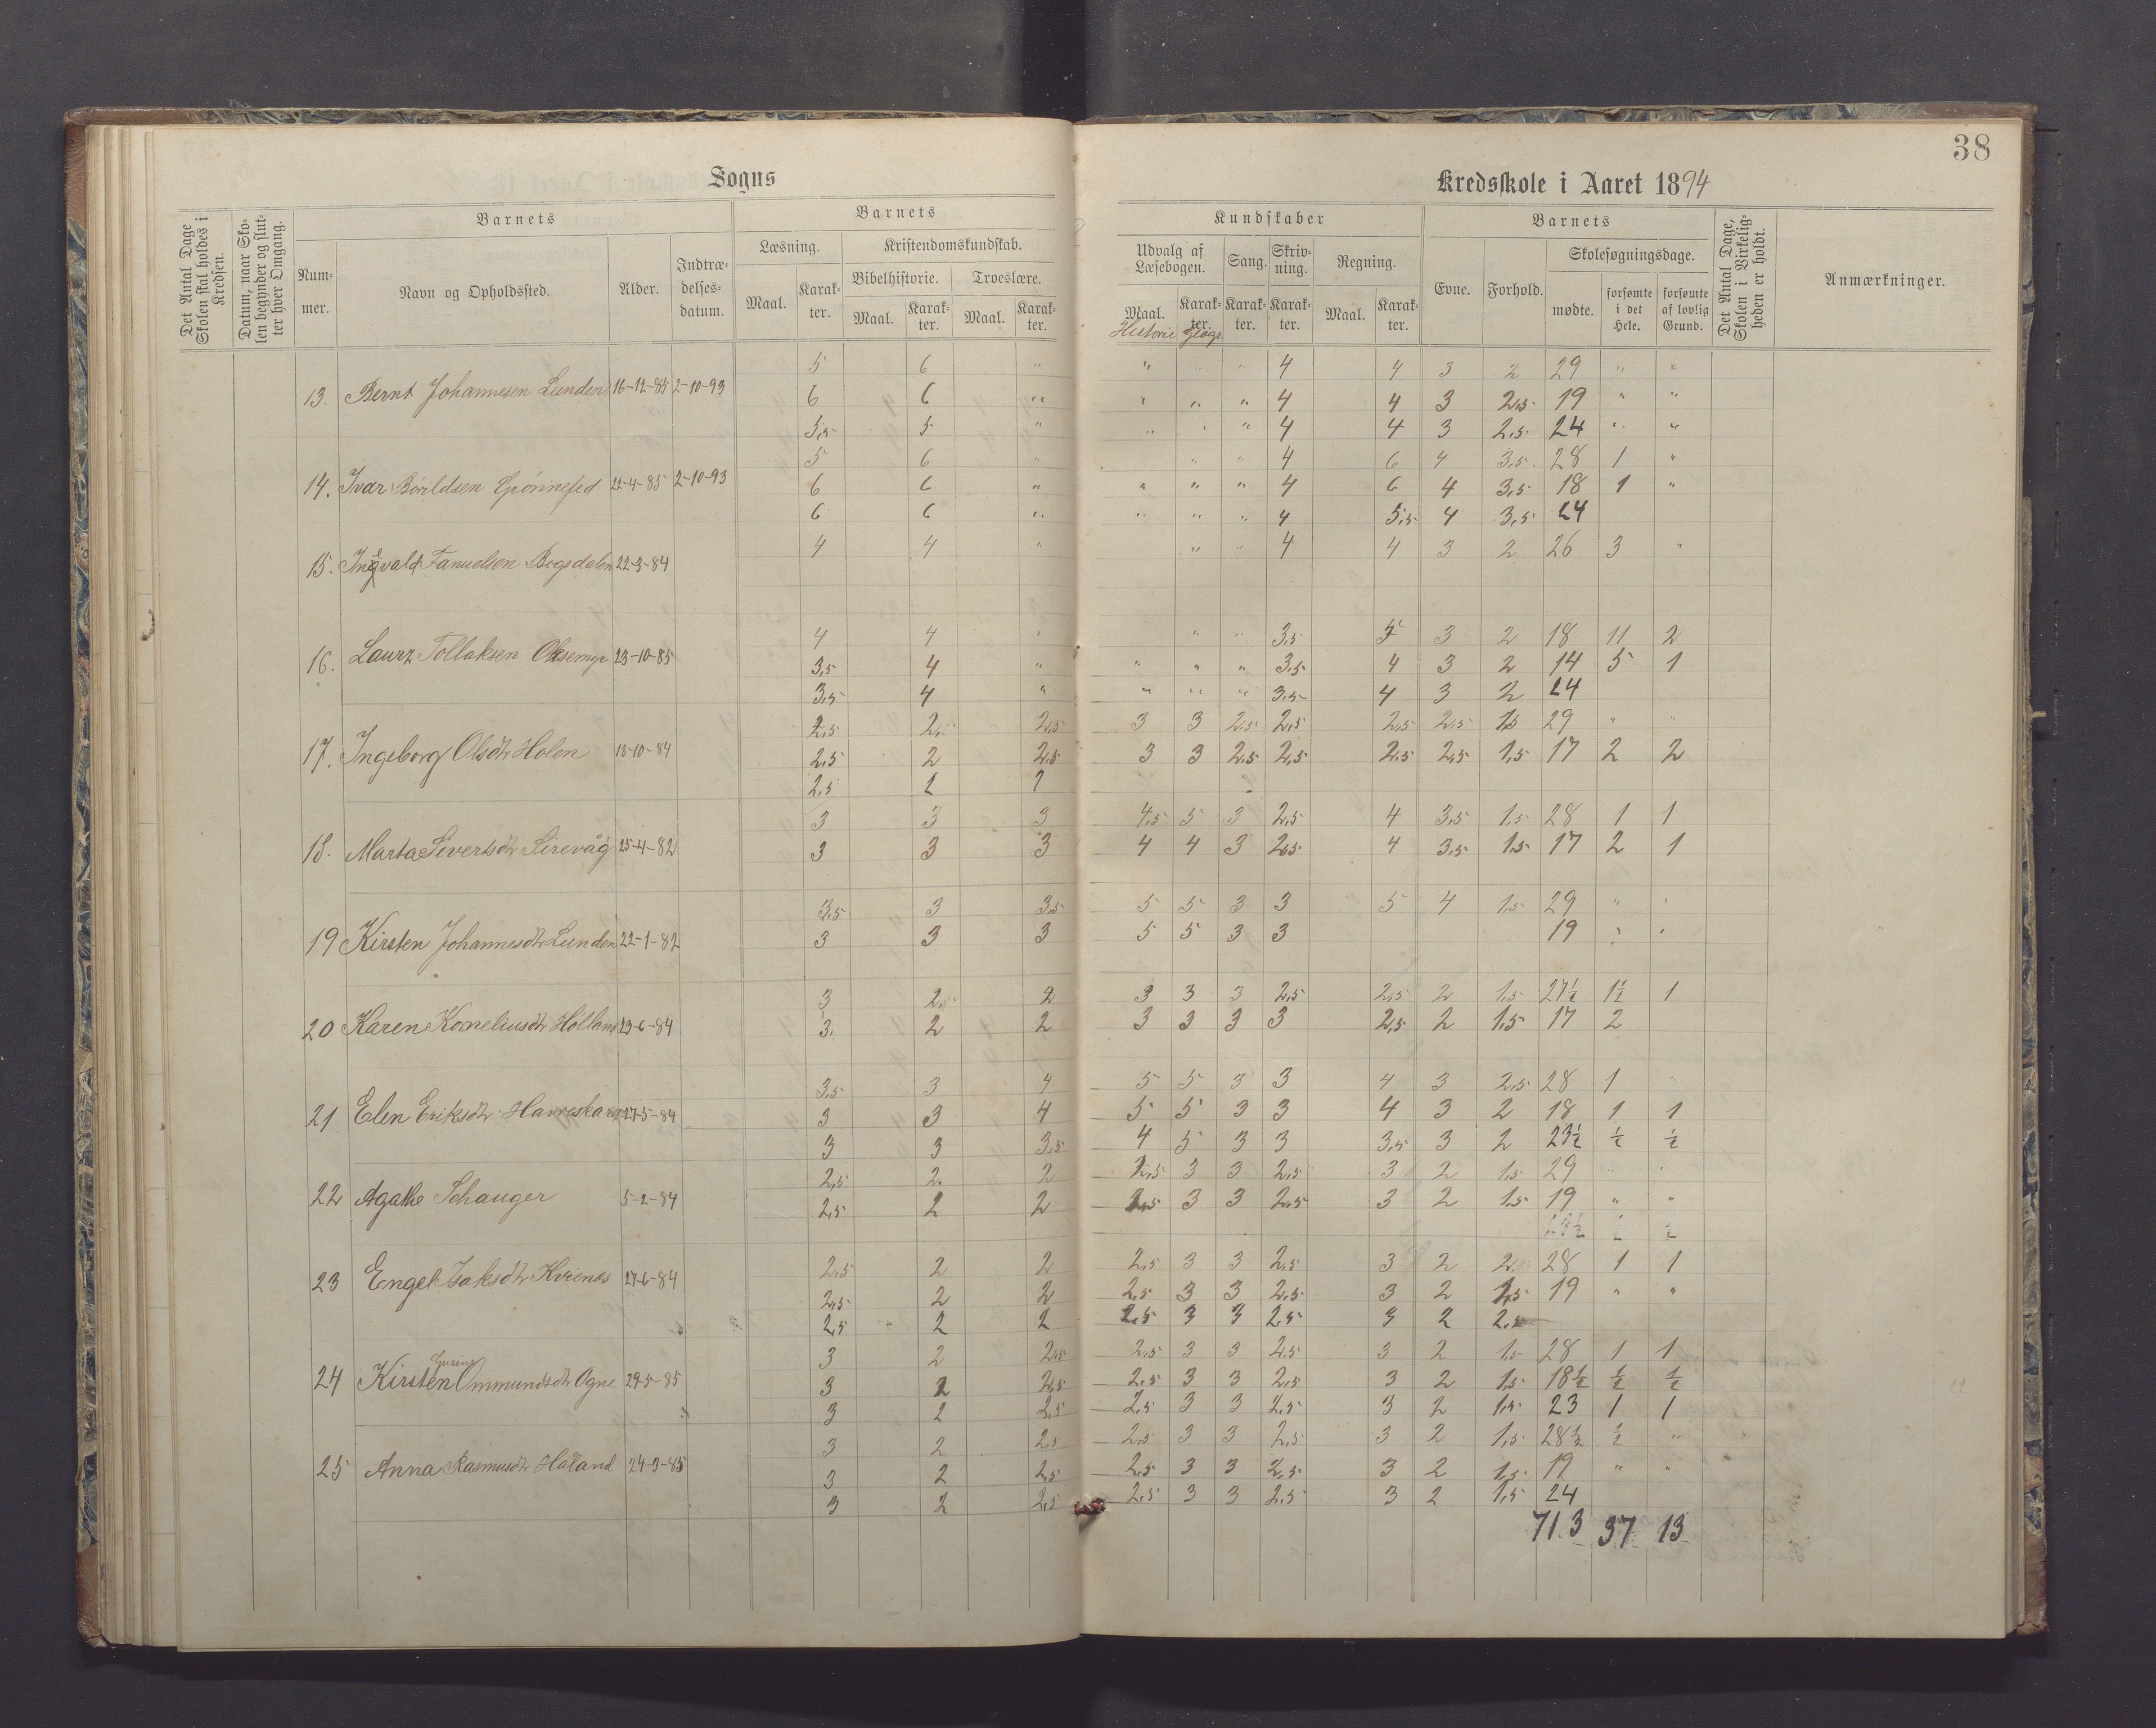 38
Sogns
Kredsskole i Aaret 1894
Det Antal Dage Skolen skal holdes i Kredsen.
Datum, naar Skolen begynder og slutter hver Omgang.
Barnets
Nummer.
Navn og Opholdssted.
Alder.
Indtrædelsesdatum.
Barnets
Læsning.
Kristendomskundskab.
Bibelhistorie.
Troeslære.
Maal.
Karakter.
Maal.
Karakter.
Maal.
Karakter.
Kundskaber
Udvalg af Læsebogen.
Sang.
Skrivning.
Regning.
Maal.
Karakter.
Karakter.
Karakter.
Maal.
Karakter.
Historie Geogr
Barnets
Evne.
Forhold.
Skolesøgningsdage.
mødte.
forsømte i det Hele.
forsømte af lovlig Grund.
Det Antal Dage, Skolen i Virkeligheden er holdt.
Anmærkninger.
5 6 " " " " 4 4 3 2 29 " "
13. Bernt Johannesen Lunden 16-12-85 2-10-93 6 6 " " " " 4 4 3 2,5 19 " "
5,5 5 " " " " 4 4 3 2,5 24 " "
5 6 " " " 4 6 4 3,5 28 1 "
14. Ivar 21-4-85 2-10-93 6 6 " " " " 4 6 4 3,5 18 1 "
6 6 " " " " 4 5,5 4 3,5 24
4 4 " " " 4 4 3 2 26 3 "
15. Ingvald Fanuelsen 22-3-84
4 4 " " " 3,5 5 3 2 18 11 2
16. Laurz Tollaksen Oksemyr 23-10-85 3,5 4 " " " " 3,5 4 3 2 14 5 1
3,5 4 " " " " 3,5 4 3 2 24
2,5 2, 2,5 3 3 2,5 2,5 2,5 2,5 1,5 29 " "
17. Ingeborg Olsdtr Holen 18-10-84 2,5 2 2,5 3 3 2,5 2,5 2,5 2,5 1,5 17 2 2
2,5 2
3 3 3 4,5 5 3 2,5 4 3,5 1,5 28 1 1
18. Marta Sivertsdtr Sirevåg 25-4-82 3 3 3 4 4 3 2,5 4 3,5 1,5 17 2 1
3,5 3 3,5 5 5 3 3 5 4 1,5 29 " "
19 Kirsten Johannesdtr Lunden 22-1-82 3 3 3 5 5 3 3 19 " "
3 2,5 2 3 3 3 2,5 2,5 2 1,5 27½ 1½ 1
20 Karen Korneliusdtr Holland 29-6-84 3. 2 2 3 3 3 3 2,5 2 1,5 17 2
3,5 3 4 5 5 3 3 4 3 2,5 28 1 "
21 Elen Eriksdtr 27-5-84 3 3 4 5 5 3 3 4 3 2 18 1 1
3 3 3,5 4 5 3 3 3,5 3 2 23½ ½ ½
2,5 2. 2 2,5 3 3 2,5 3 2 1,5 29 " "
22 Agathe Schauger 5-2-84 2,5 2 2 2,5 3 3 2,5 3 2 1,5 19 " "
½ ½
2,5 2 2 2,5 3 3 2,5 3 2 2 28 1 1
23 Engel Isaksdtr Kvienes 27-6-84 2,5 2 2 2,5 3 3 2,5 3 2 2,5 19 " "
2,5 2 2 2,5 3 3 2,5 3 2 2,5
3 2 2,5 2,5 3 3 2,5 3 2 1,5 28 1 1
24 Kirsten Ommundsdtr Ogne 29-5-85 3 2 2,5 2,5 3 3 2,5 3 2 1,5 18½ ½ ½
3 2 2,5 2,5 3 3 2,5 3 2 1,5 23 1 1
3 2 2,5 2,5 3 3 2,5 3 2 1,5 28½ ½ "
25 Anna Rasmusdtr Håland 24-3-85 3 2 2,5 2,5 3 3 2,5 3 2 1,5 19 " "
3 2 2,5 2,5 3 3 2,5 3 2 1,5 24
713 37 13